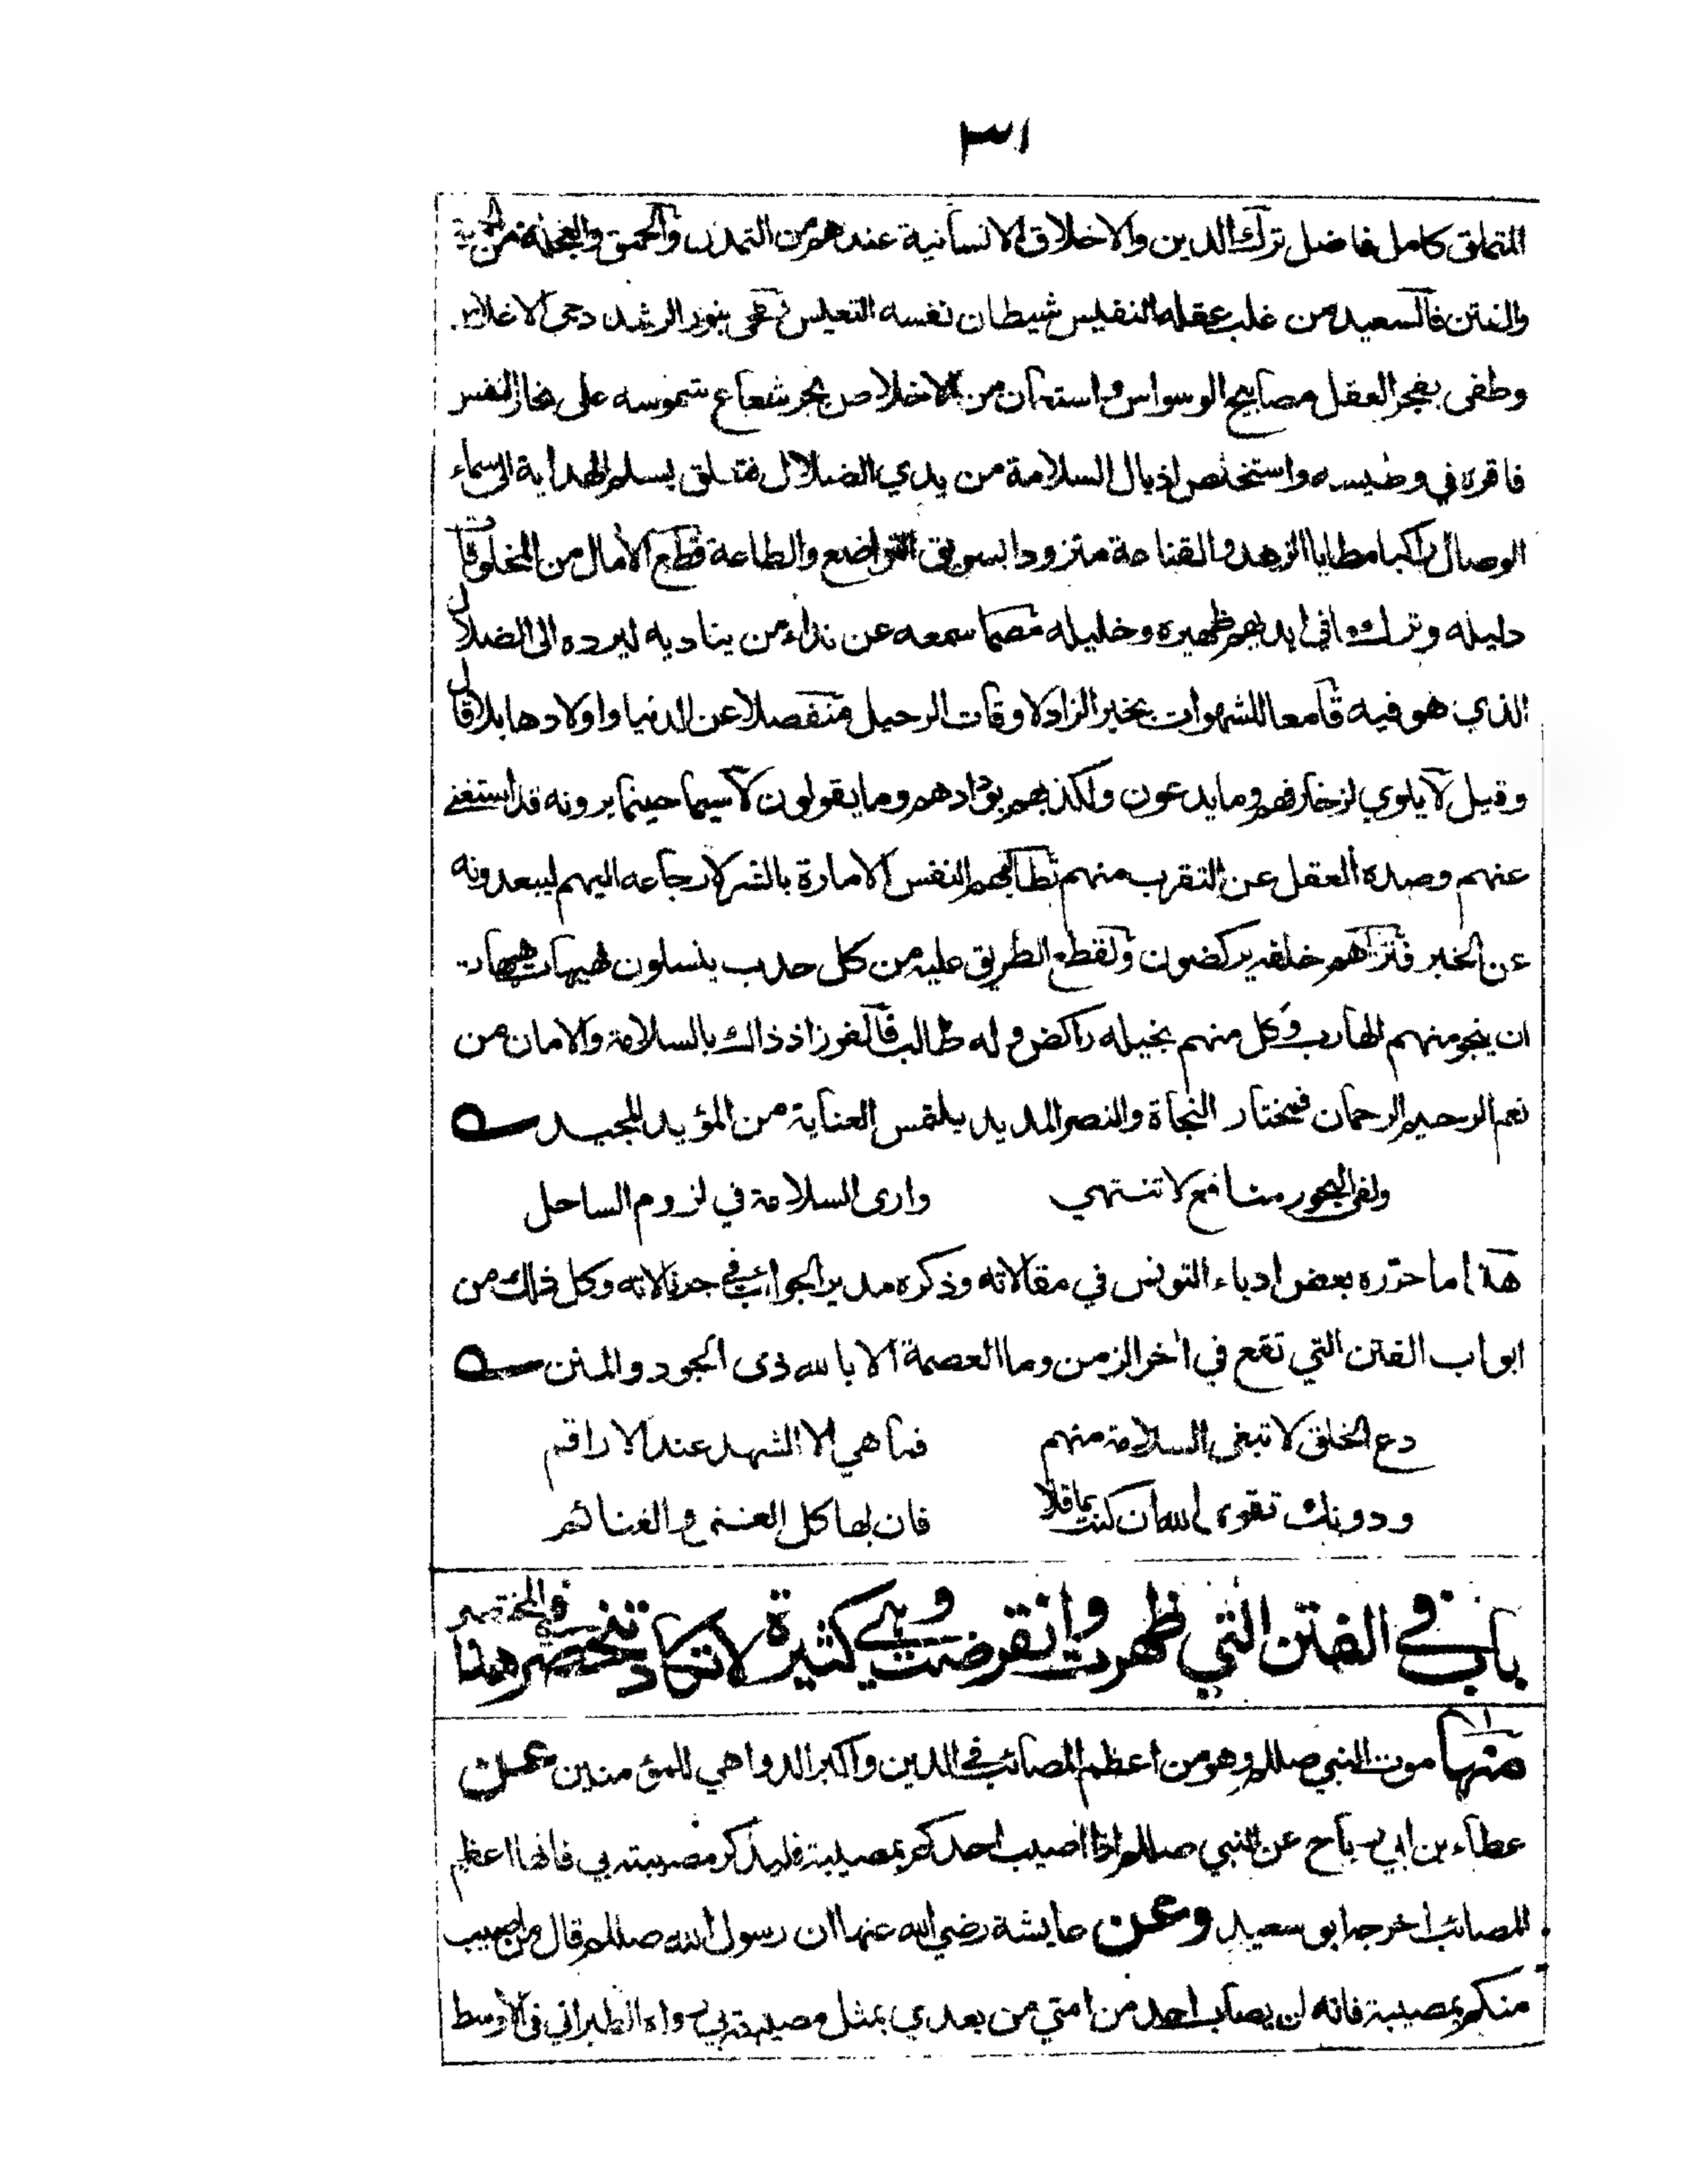 ٣١
المتملق كامل فاضل ترك الدين والاخلاق الانسانية عندهم من التمدن والحمق والعجلة من الحرية
والفتن فالسعيد من غلب عقله النفيس شيطان نفسه التعيس فمحى بنور الرشد دجى الاغلاس
وطفى بفجر العقل مصابيح الوسواس واستعان من الاخلاص بحر شعاع شموسه على بخار النفس
فاقره في وطيسه واستخلص اذيال السلامة من يدي الضلال فتسلق بسلم الهداية الى سماء
الوصال راكبا مطايا الزهد والقناعة متزودا بسويق التواضع والطاعة قطع الآمال من المخلوقات
دليله وترك ما في ايديهم ظهيره وخليله مصما سمعه عن نداء من يناديه ليرده الى الضلال
الذي هو فيه قامعا للشهوات بخير الزاد لاوقات الرحيل منفصلا عن الدنيا واولادها بلا قال
وقيل لا يلوي لزخارفهم وما يدعون ولكذبهم بودادهم وما يقولون لاسيما حينما يرونه قد استغنى
عنهم وصده العقل عن التقرب منهم تطالبهم النفس الامارة بالشر لارجاعه اليهم ليبعدونه
عن الخير فتراهم خلفه يركضون ولقطع الطريق عليه من كل حدب ينسلون هيهات هيهات
ان ينجو منهم الهارب وكل منهم بخيله راكض وله طالب فالفوز اذ ذاك بالسلامة والامان من
نعم الرحيم الرحمان فمختار النجاة والنصر المديد يلتمس العناية من المؤيد المجيد
ولفى البحور منافع لا تنتهي وارى السلامة في لزوم الساحل
هذا ما حرّره بعض ادباء التونس في مقالاته وذكره مدير الجوائب في جرنالاته وكل ذلك من
ابواب الفتن التي تقع في اخر الزمن وما العصمة الا بالله ذى الجود والمنن
دع الخلق لا تبغى السلامة منهم فما هي الا الشهد عند الاراقم
ودونك تقوى الله ان كنت عاقلا فان لها كل الغنى والغنائم
باب في الفتن التي ظهرت وانقرضت وهي كثيرة لا تكاد تنحصر في هذا المختصر
منها موت النبي صللم وهو من اعظم المصائب في الدين واكبر الدواهي للمؤمنين عن
عطاء بن ابي رباح عن النبي صللم اذا اصيب احدكم بمصيبة فليذكر مصيبته بي فانها اعظم
المصائب اخرجه ابو سعيد وعن عايشة رضي الله عنها ان رسول الله صللم قال من اصيب
منكم بمصيبة فانه لن يصاب احد من امتي من بعدي بمثل مصيبته بي رواه الطبراني في الاوسط